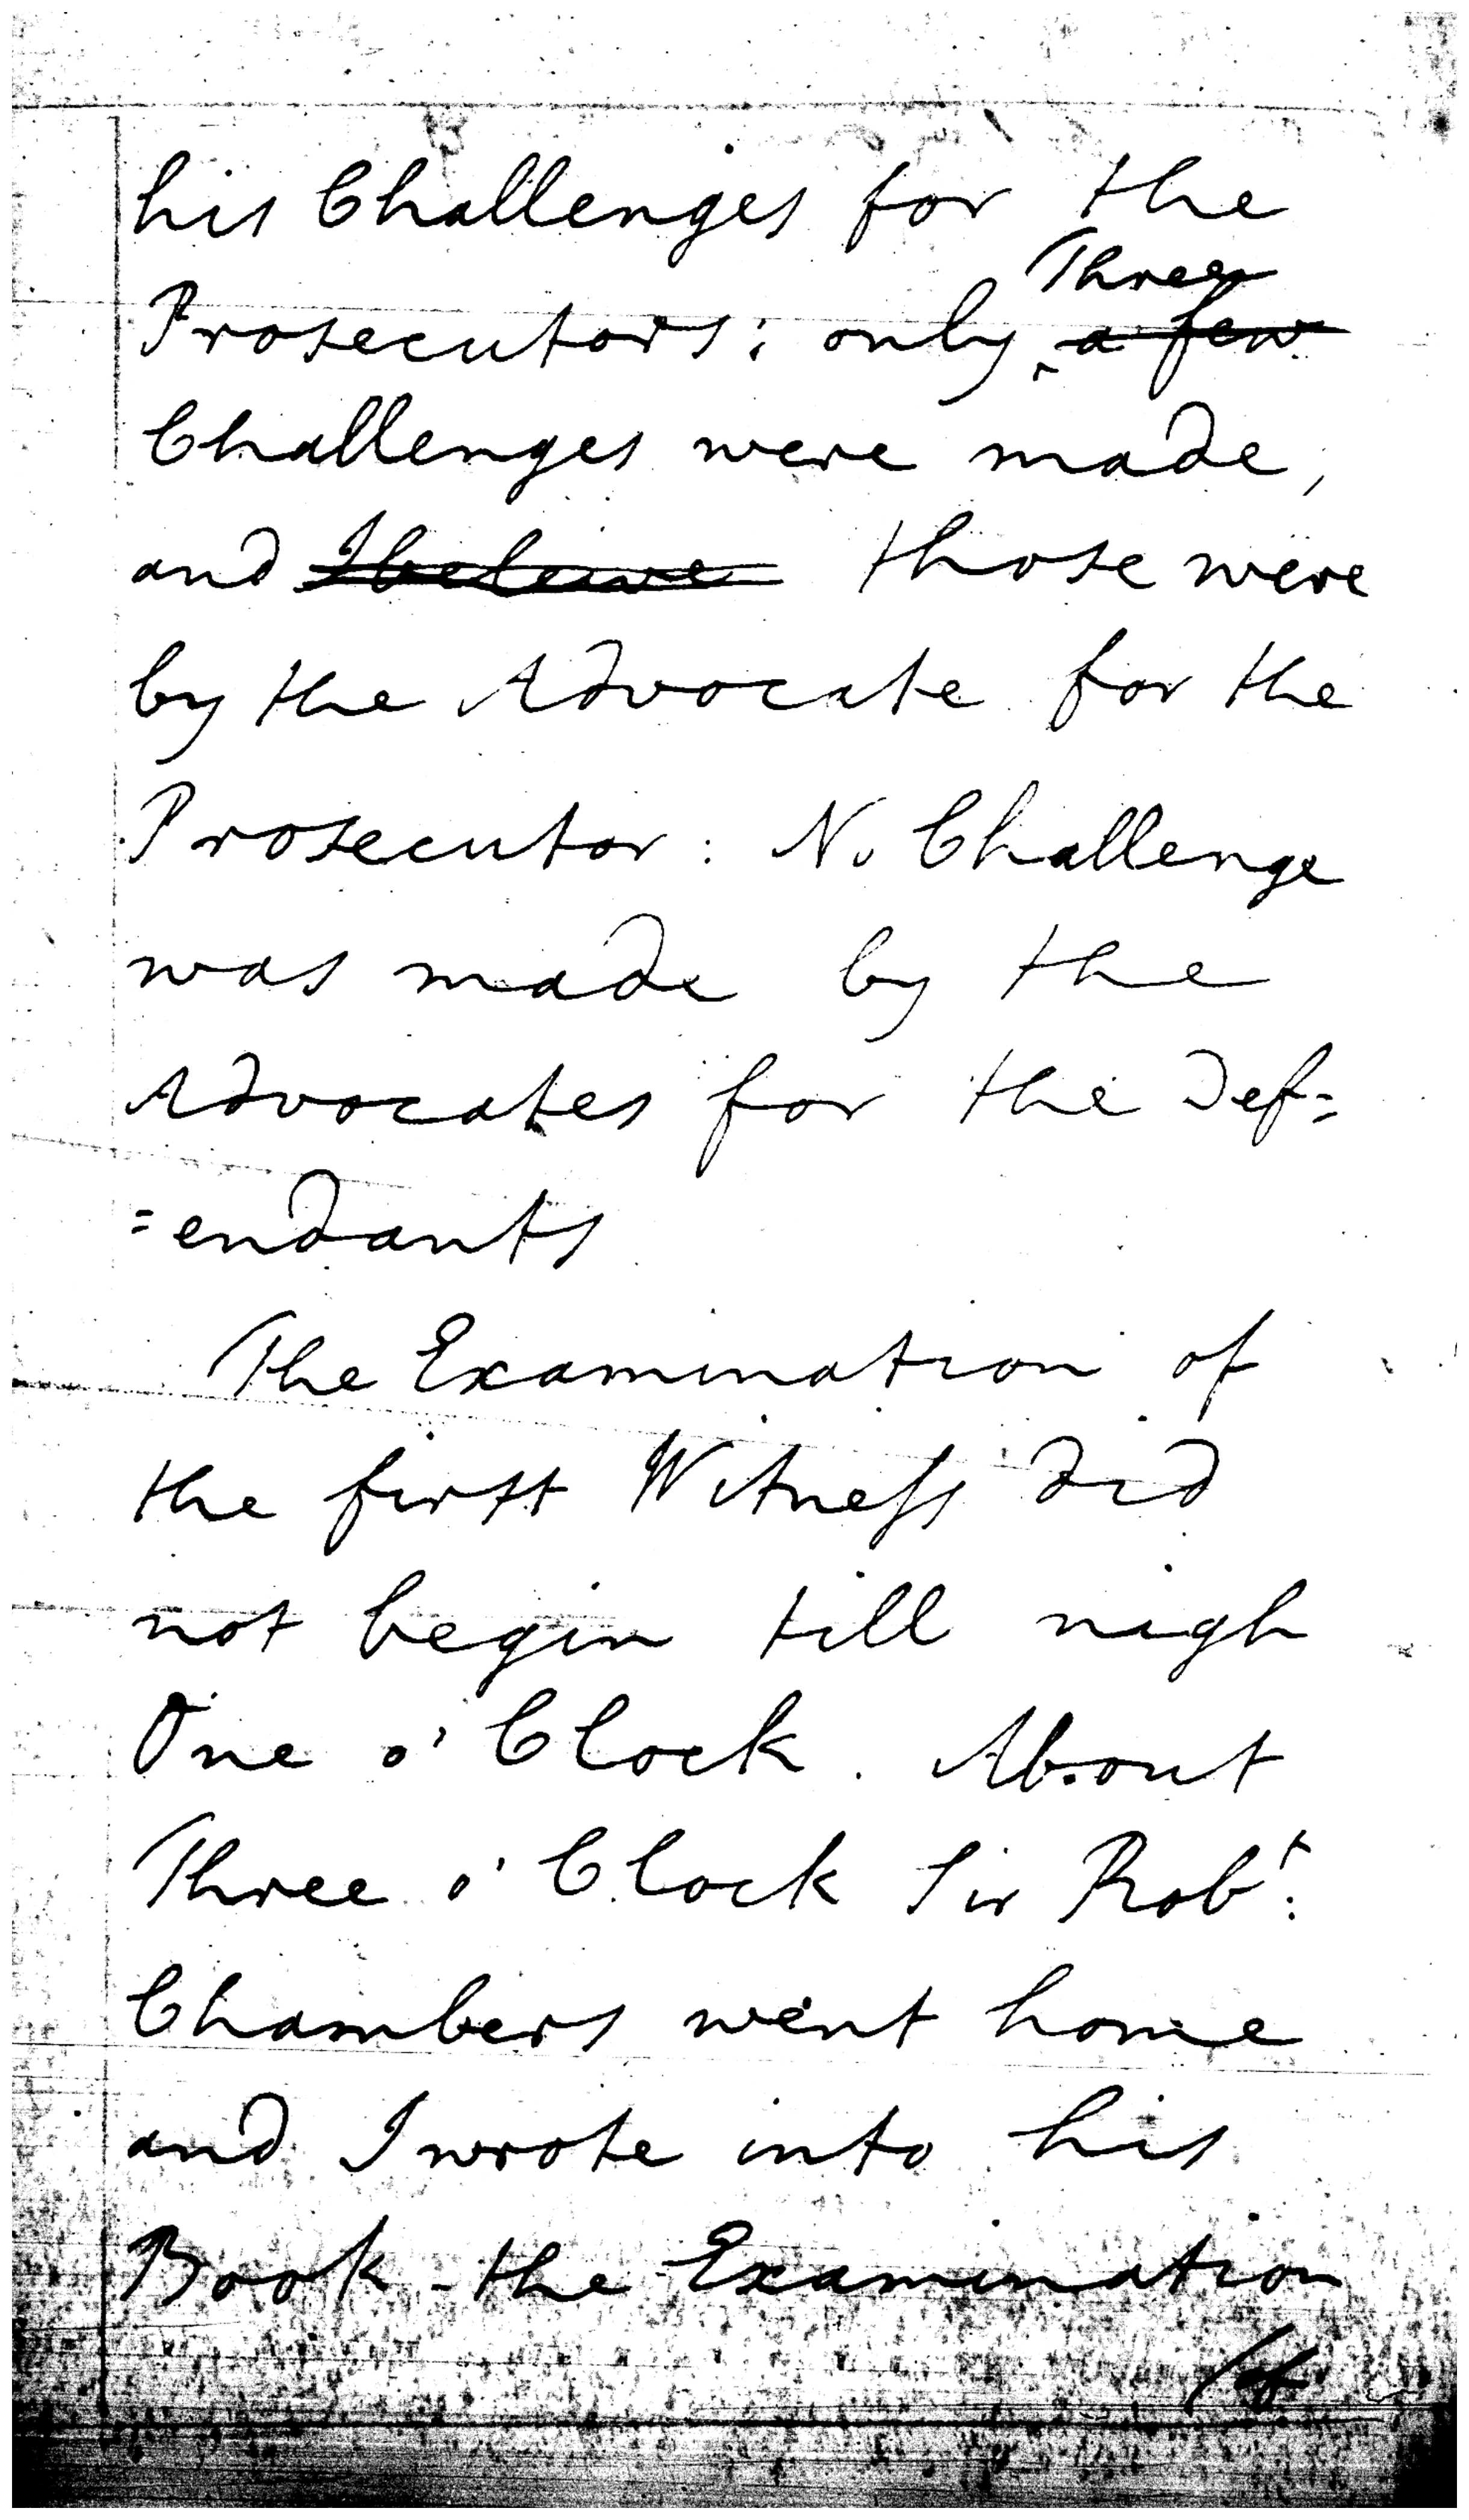 his Challenges for the
Three
Prosecutors; only a few
Challenges were made,
and I beleive those were
by the Advocate for the
Prosecutor: No Challenge
was made by the
Advocates for the Def=
=endants
The Examination of
the first Witness did
not begin till nigh
One o' Clock. About
Three o' Clock Sir Robt:
Chambers went home
and I wrote into his
Book the Examination
of